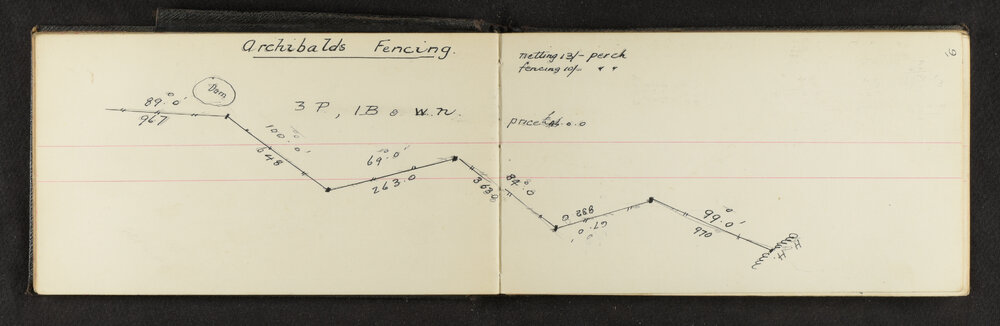 Archibalds Fencing.
Dam
89°.0'
967
3 P, 1 B o w n.
100°.0'
648
69°.0'
263.0
netting 13/- perch
fencing 10/- " "
price
84°.0
363.0
67°.0'
832.0
99°.0'
970